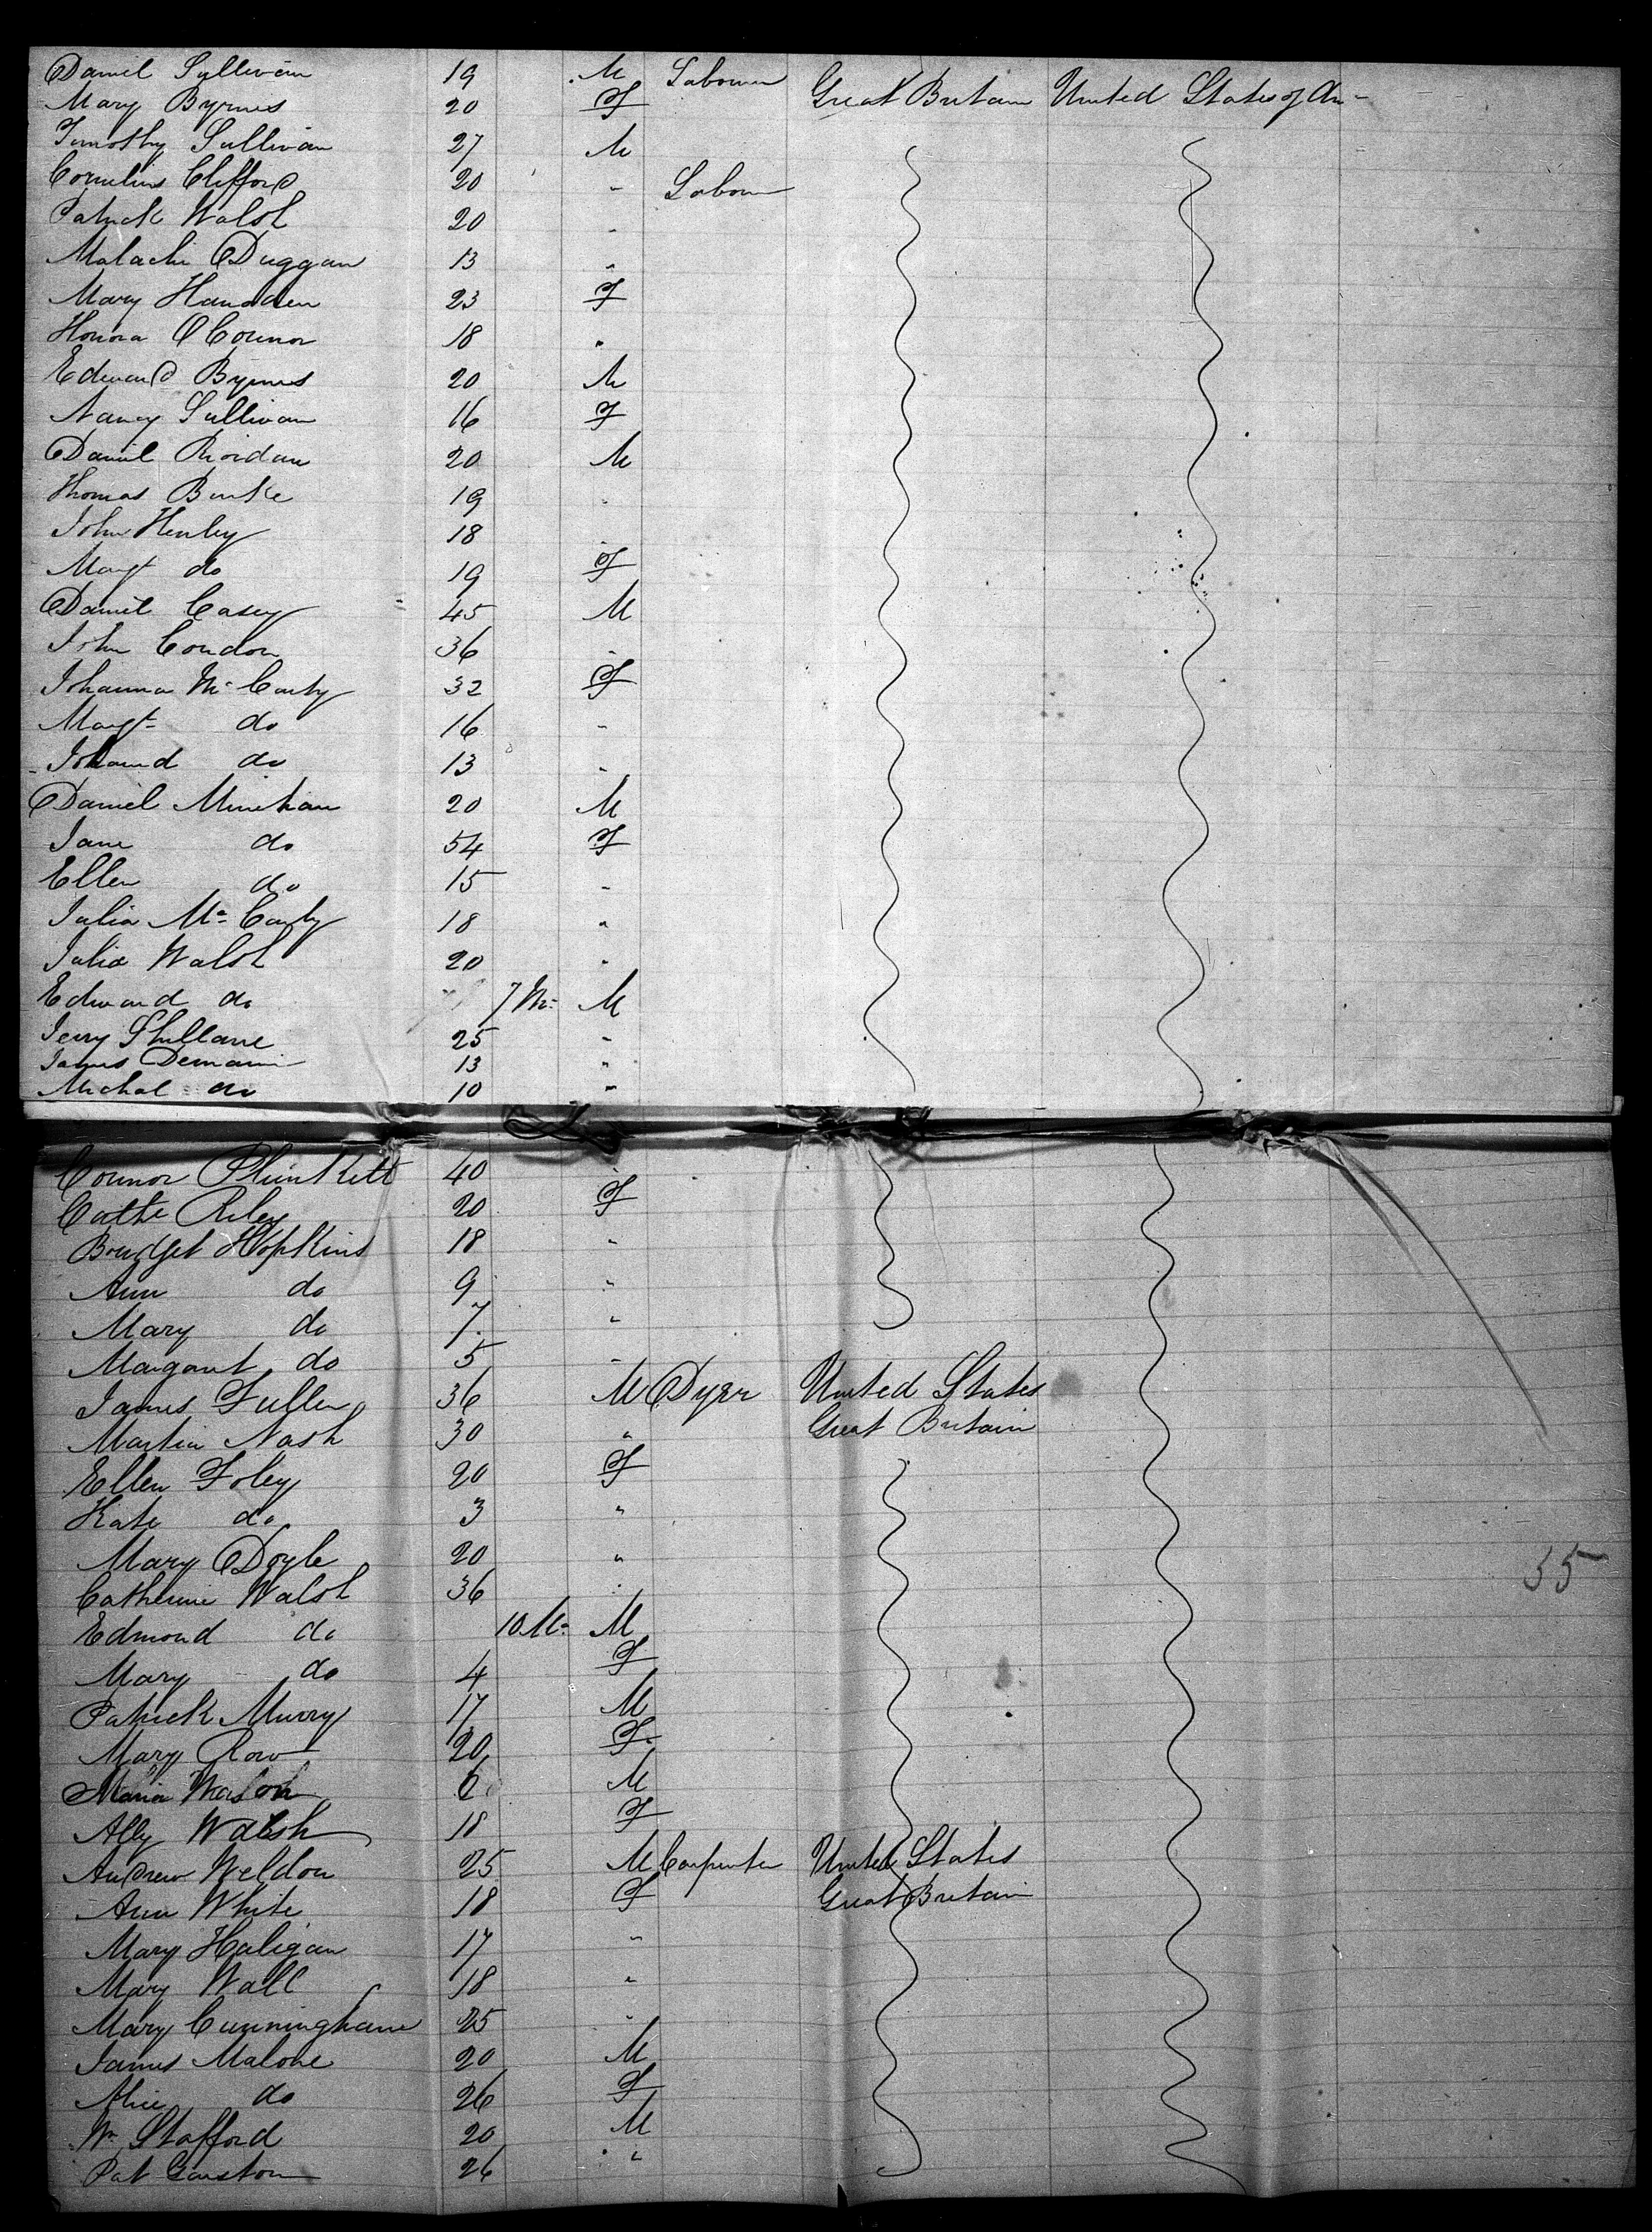 Daniel Sullivan 19 M Labourer
Mary Byrnes 20 F Great Britain United States of Am-
Timothy Sullivan 27 M
Cornelius Clifford 20 " Labour
Patrick Walsh 20 "
Malachi Duggan 13 "
Mary 23 F
Honora O Connor 18 "
Edward Byrnes 20 M
Nancy Sullivan 16 F
Daniel Riordan 20 M
Thomas Burke 19 "
John Henley 18 "
Margt do 19 F
Daniel Casey 45 M
John Condon 36 "
Johanna Mc Carty 32 F
Margt do 16 "
do 13 "
Daniel Minehan 20 M
Jane do 54 F
Ellen do 15 "
Julia Mc Carty 18 "
Julia Walsh 20 "
Edward do 7 Ms M
Jerry 25 "
James 13 "
Michal do 10 "
Connor Plunkett 40 "
Cathe Riley 20 F
Bridget Hopkins 18 "
Ann do 9 "
Mary do 7 "
Margaret do 5 "
James Fullen 36 M Dyer United States
Martin Nash 30 " Great Britain
Ellen Foley 20 F
Kate do 3 "
Mary Doyle 20 "
Catherine Walsh 36 "
Edmond do 10 Ms M
Mary do 4 F
Patrick Murry 17 M
Mary Row 20 F
Maria 6 M
Ally Walsh 18 F
Andrew Weldon 25 M Carpenter United States
Ann White 18 F Great Britain
Mary Haligan 17 "
Mary Wall 18 "
Mary Cunningham 25 "
James Malone 20 M
Alice do 26 F
Wm Stafford 20 M
Pat 26 "
55